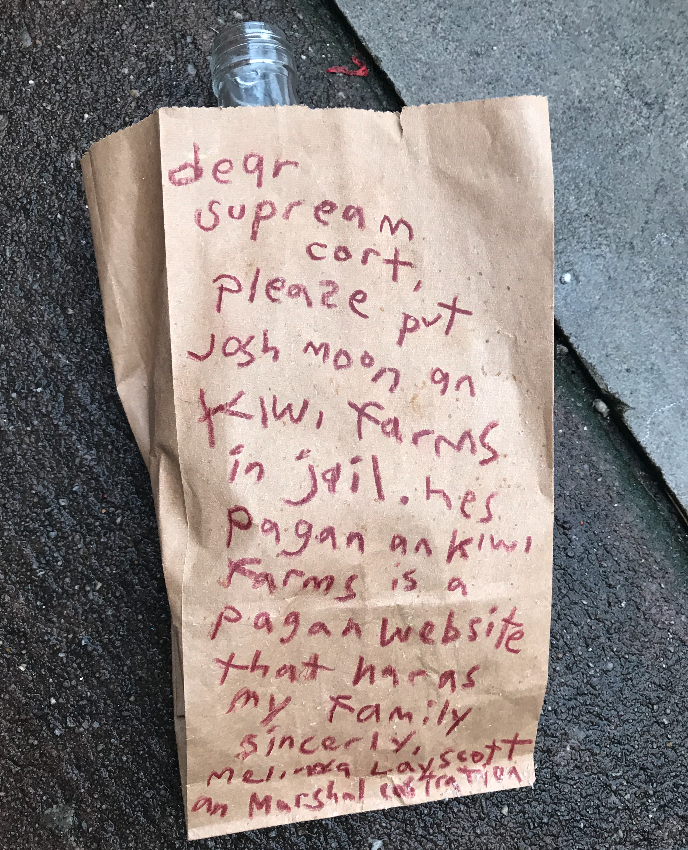 dear
supream
cort,
pleaze put
Josh moon an
Kiwi Farms
in jail. hes
pagan an Kiwi
Farms is a
pagan website
that haras
my Family
sincerly,
Melinda Layscott
an Marshal castration